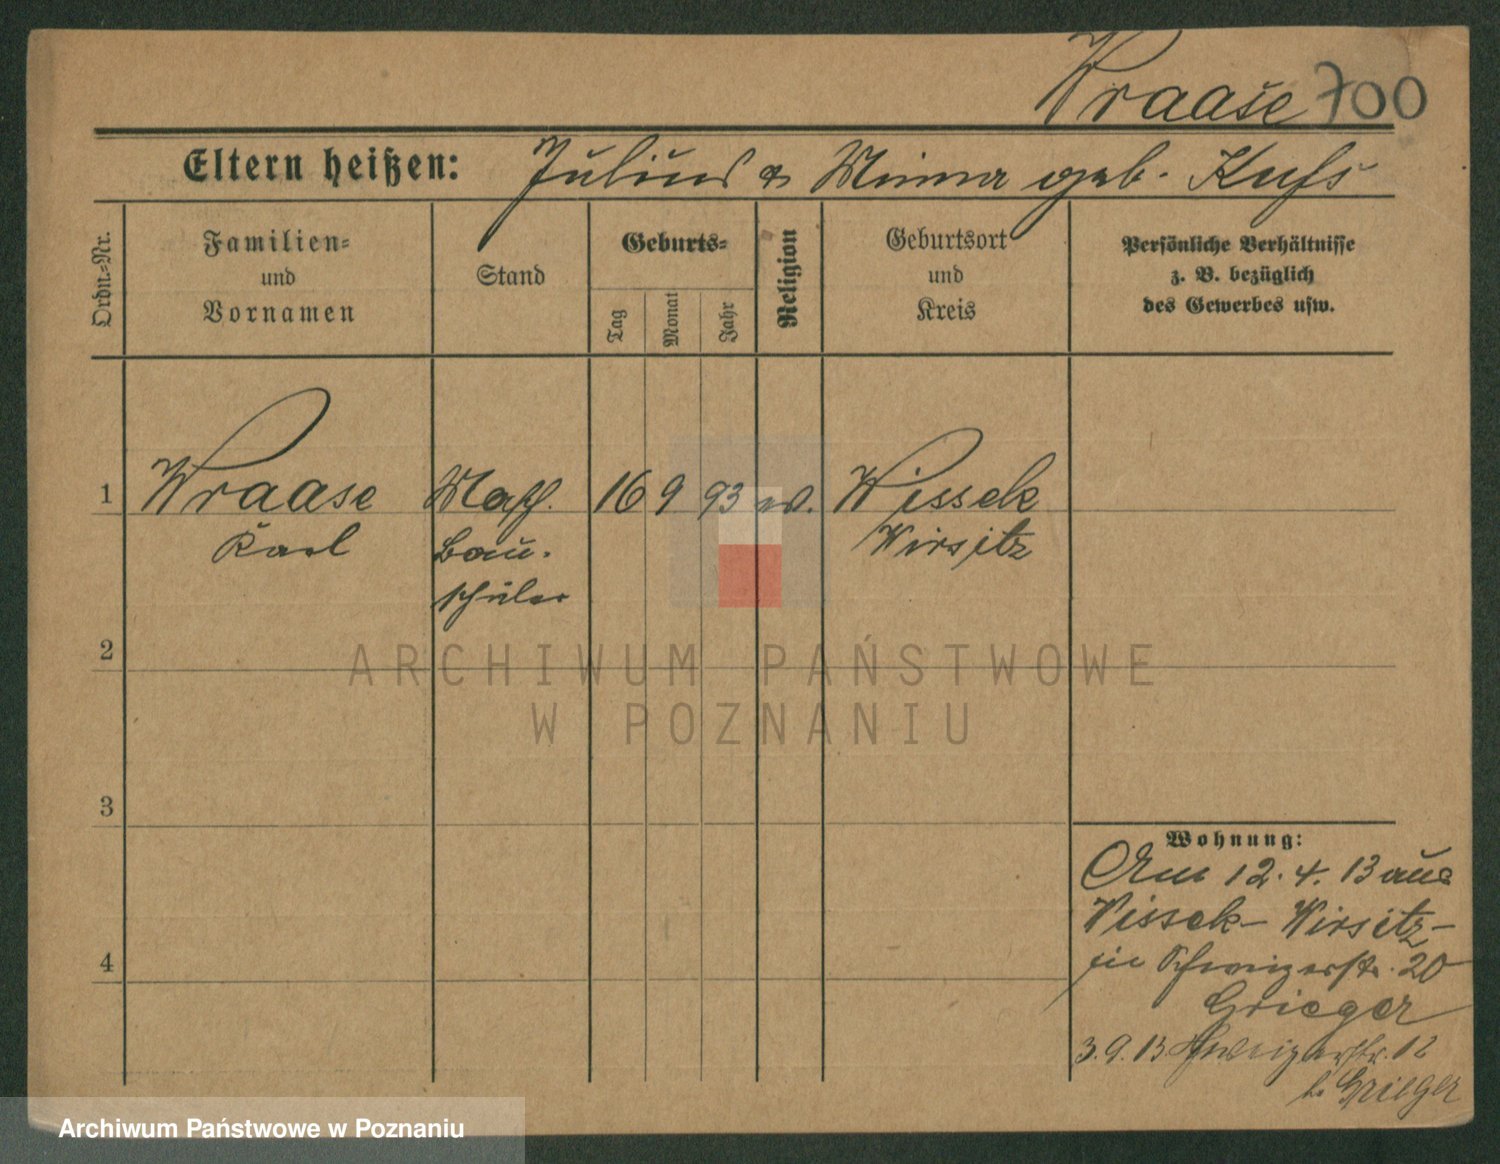 Wraase 700
Eltern heißen: Julius & Minna geb. Kuß
Ordn.-Nr.
Familien-
und
Vornamen
Stand
Geburts-
Tag
Monat
Jahr
Religion
Geburtsort
und
Kreis
Persönliche Verhältnisse
z. B. bezüglich
des Gewerbes usw.
1 Wraase Masch. 16 9 93 ev. Wissek
Karl Bau- Wirsitz
schüler
2
ARCHIWUM PAŃSTWOWE
W POZNANIU
3
Wohnung:
Am 12.4.13 aus
Wissek- Wirsitz-
4
20
Grieger
3.9.13 12
b. Grieger
Archiwum Państwowe w Poznaniu